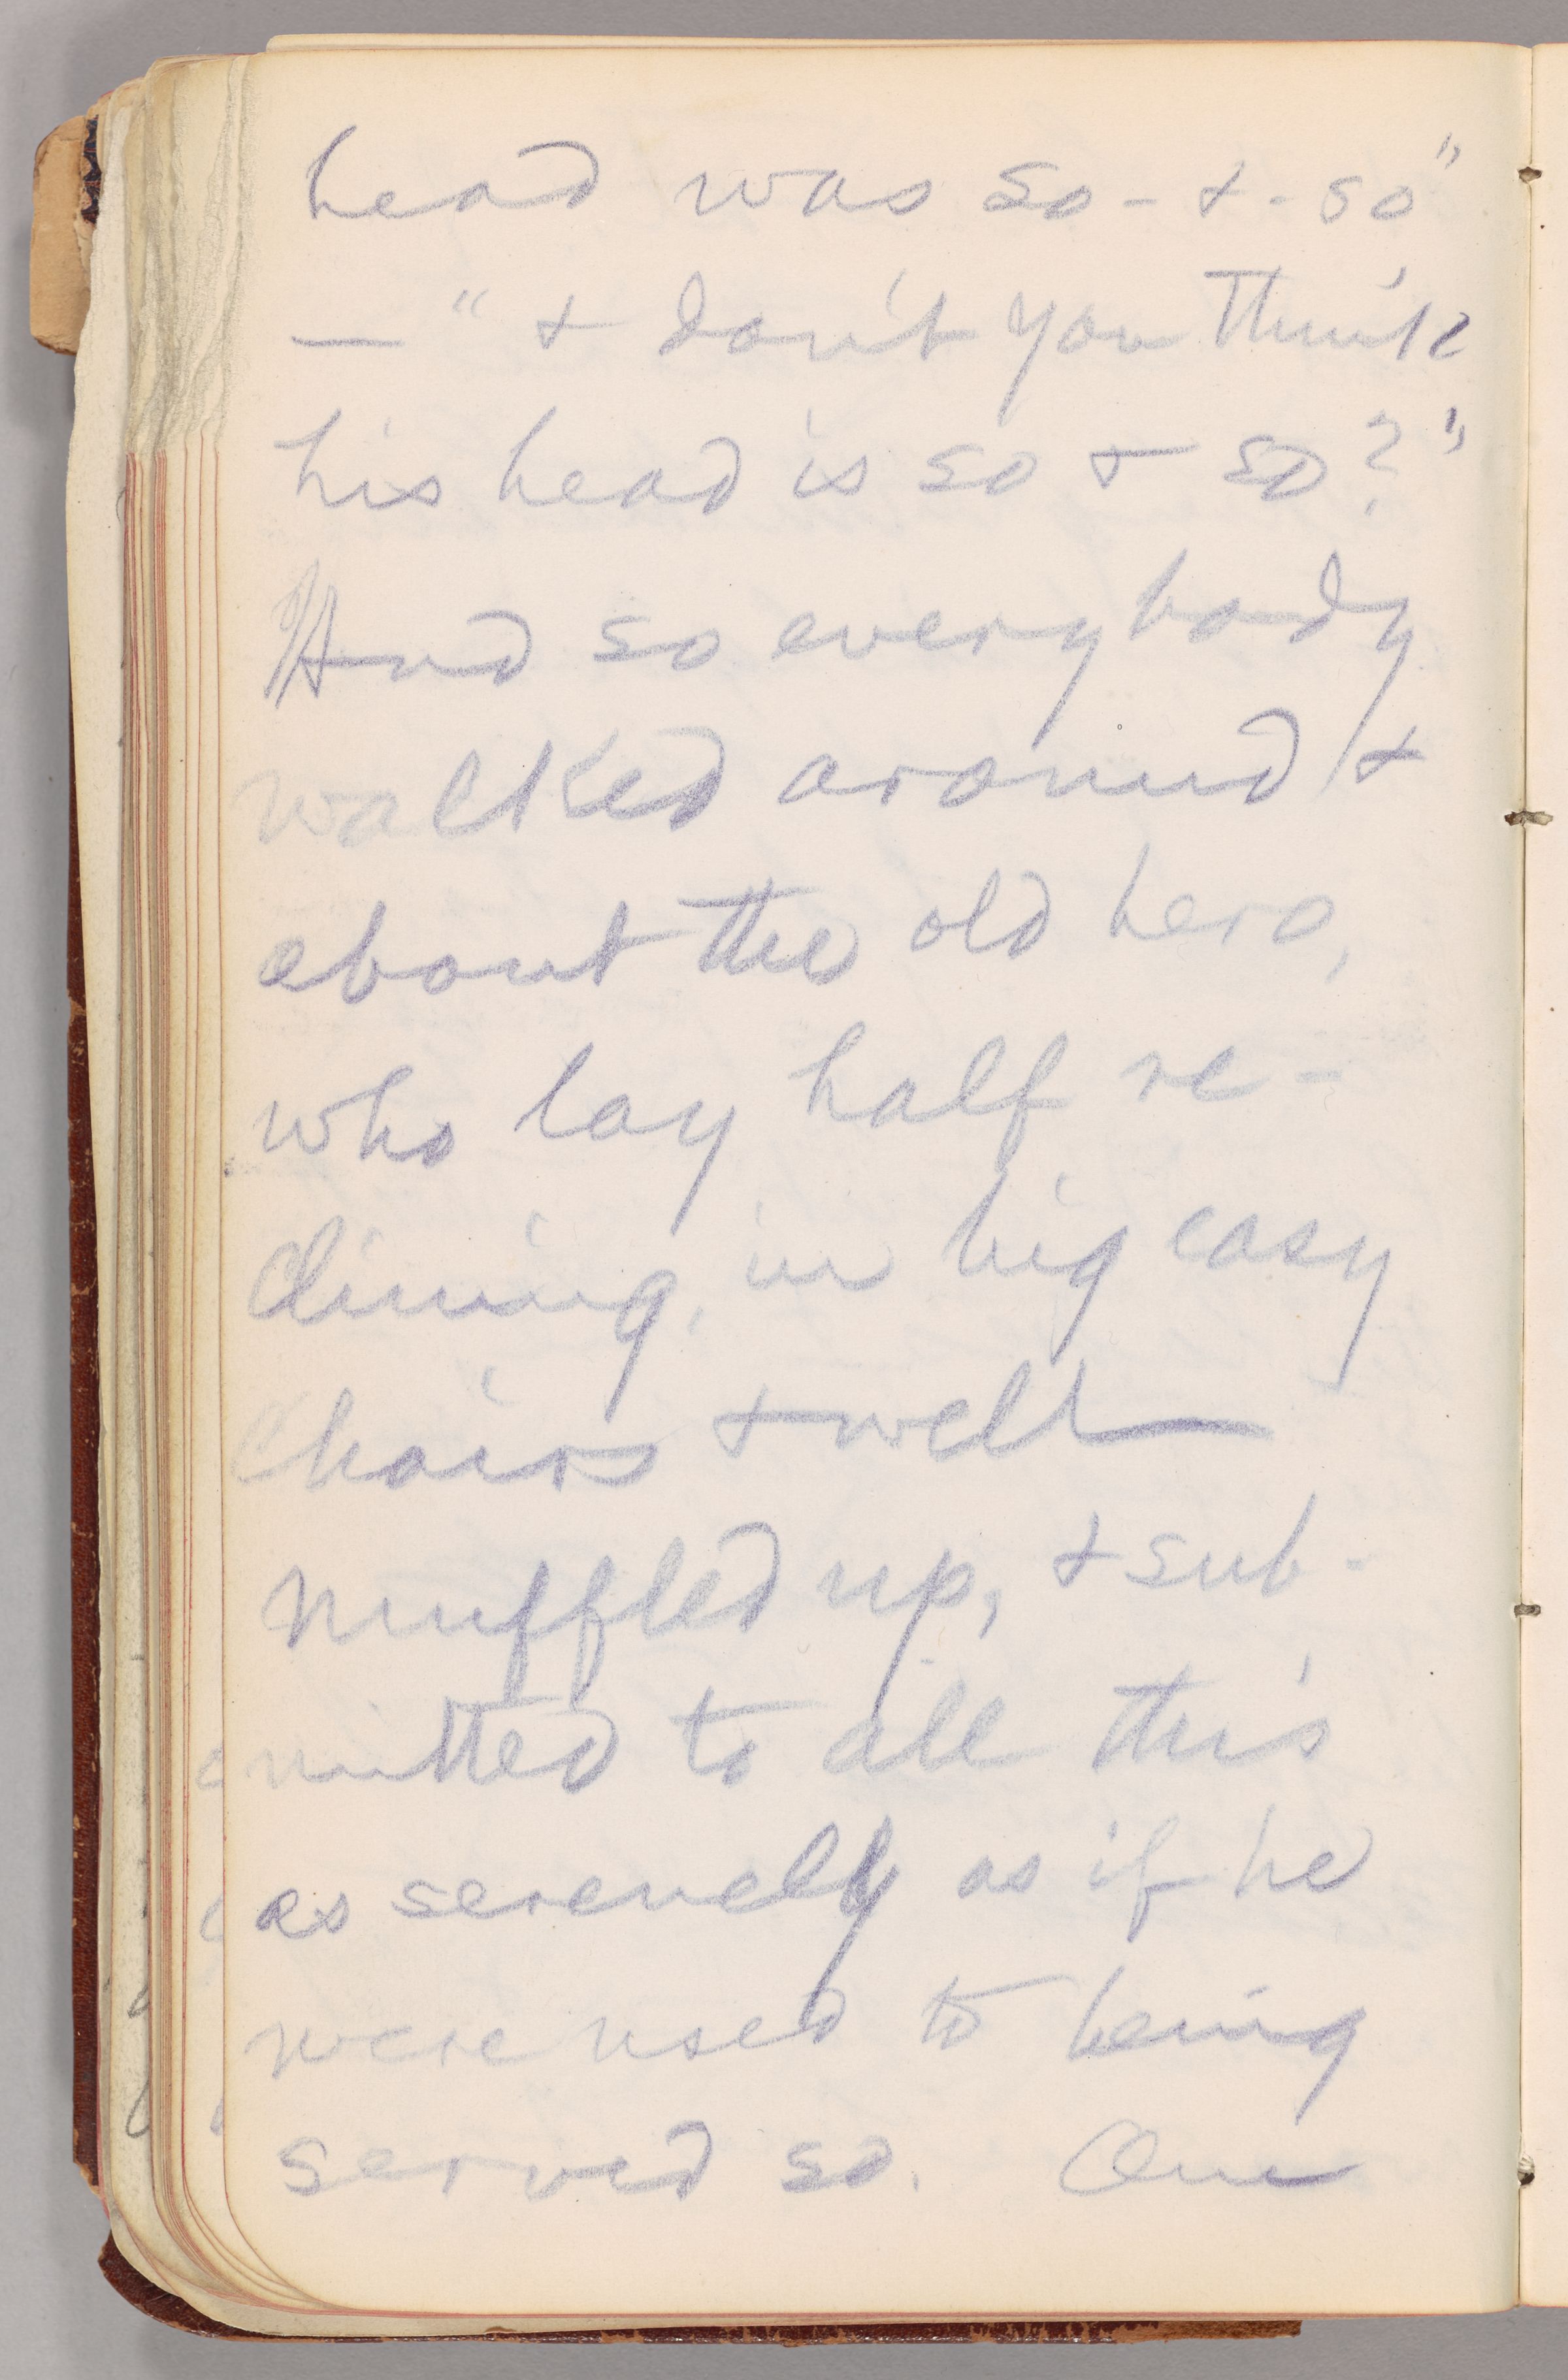 head was so-&-so"
— "& don't you think
his head is so & so?"
And so everybody
walked around &
about the old hero,
who lay half re-
clining, in big easy
chairs & well
muffled up, & sub-
mitted to all this
as serenely as if he
were used to being
served so. One